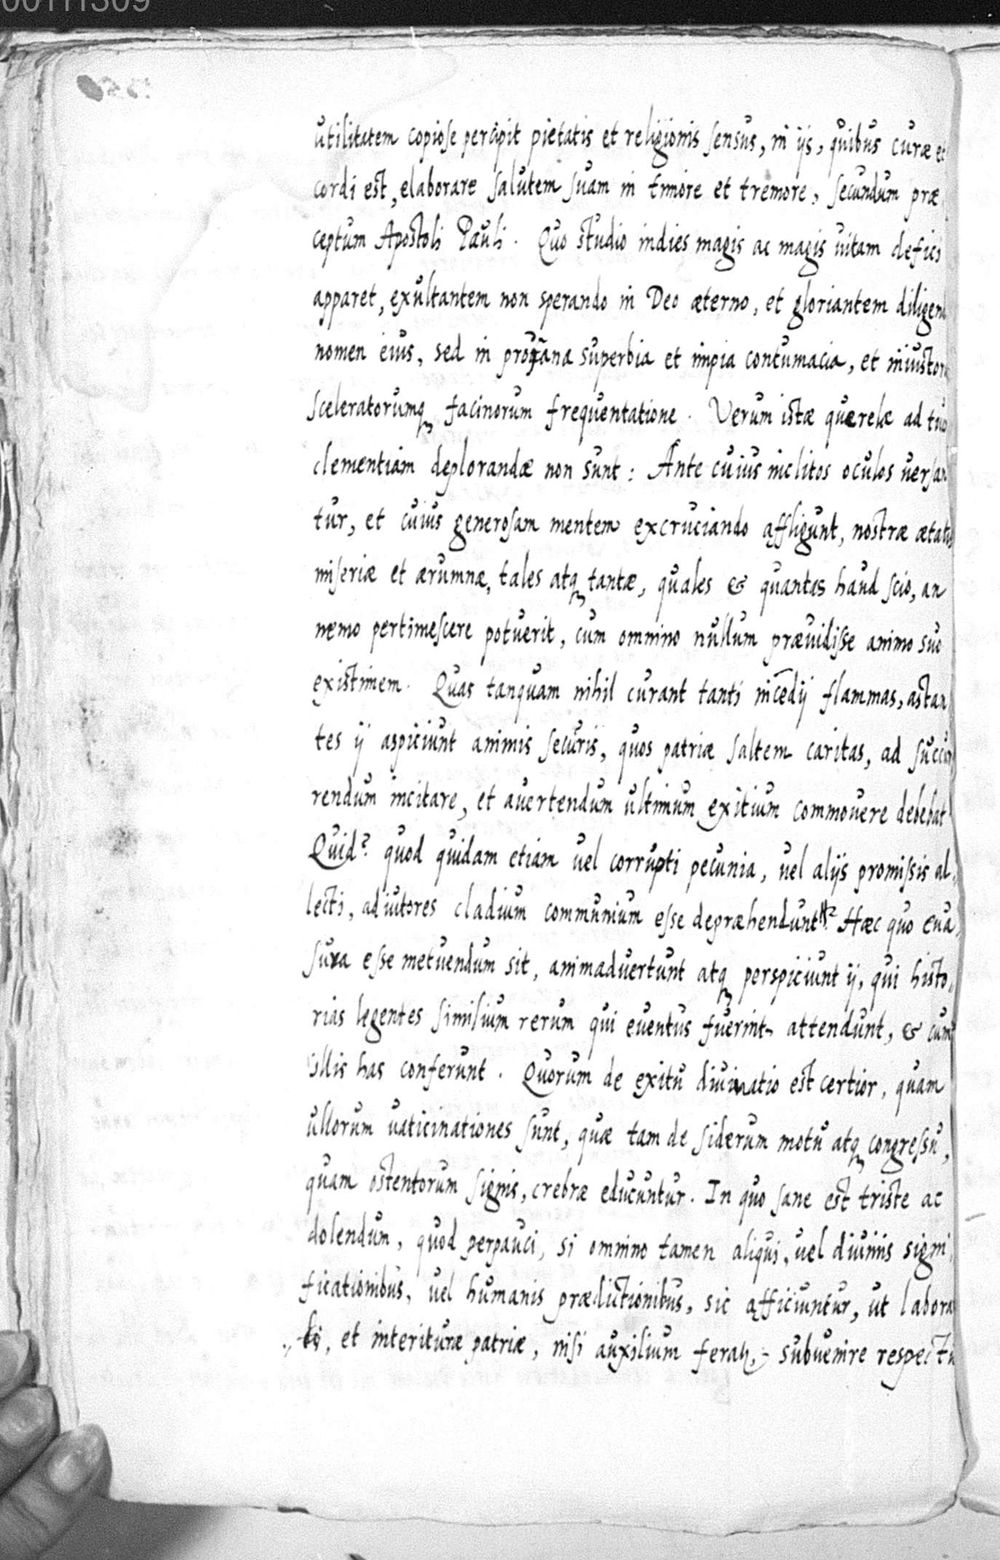 00111309
utilitatem copiose percipit pietatis et religionis sensus, in ijs, quibus curæ et
cordi est, elaborare salutem suam in timore et tremore, secundum præ
ceptum Apostoli Pauli. Quo studio indies magis ac magis uitam defici
apparet, exultantem non sperando in Deo æterno, et gloriantem diligen
nomen eius, sed in profana superbia et impia contumacia, et iniustor
sceleratorumq facinorum frequentatione. Verum istæ querelæ ad tua
clementiam deplorandæ non sunt: Ante cuius inclitos oculos uersan
tur, et cuius generosam mentem excruciando affligunt, nostræ ætatis
miseriæ et ærumnæ, tales atq tantæ, quales & quantas haud scio, an
nemo pertimescere potuerit, cum omnino nullum præuidisse animo suo
existimem. Quas tanquam nihil curant tanti incēdij flammas, astan
tes ij aspiciunt animis securis, quos patriæ saltem caritas, ad succur
rendum incitare, et auertendum ultimum exitium commouere debebat
Quid? quod quidam etiam uel corrupti pecunia, uel alijs promissis al
lecti, adiutores cladium communium esse depræhenduntr? Hæc quo eua
sura esse metuendum sit, animaduertunt atq perspiciunt ij, qui histo
rias legentes similium rerum qui euentus fuerint, attendunt, & cum
illis has conferunt. Quorum de exitu diuinatio est certior, quam
ullorum uaticinationes sunt, quæ tam de siderum motu atq congressu,
quam ostentorum signis, crebræ educuntur. In quo sane est triste ac
dolendum, quod perpauci, si omnino tamen aliqui, uel diuinis signi
ficationibus, uel humanis prædictionibus, sic afficiuntur, ut labora
ti, et interituræ patriæ, nisi auxilium ferat, subuenire respectu